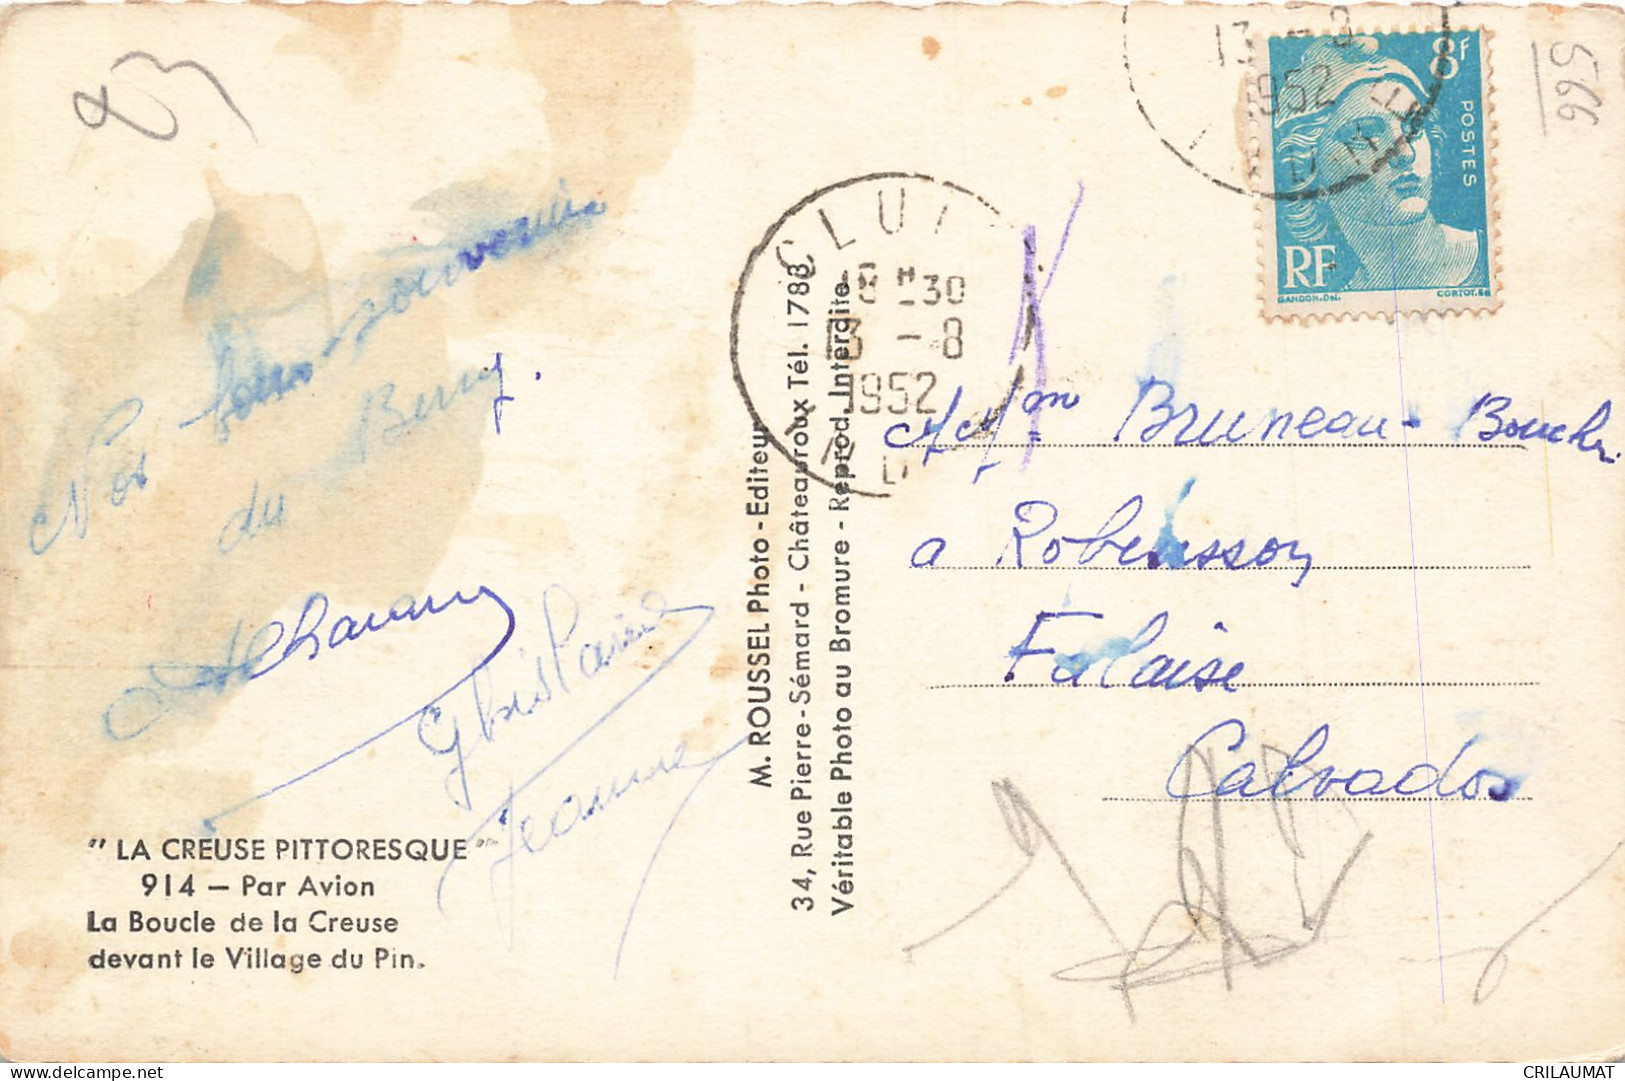 83
5566
13 - 8
1952
8F
POSTES
RF
GANDON.Del.
CORTOT.Sc
CLUI
8H30
13 - 8
1952
Nos bons souvenirs
du Berry.
Ghislaine
Jeanne
" LA CREUSE PITTORESQUE "
914 — Par Avion
La Boucle de la Creuse
devant le Village du Pin.
M. ROUSSEL Photo - Editeur
34, Rue Pierre-Sémard - Châteauroux Tél. 1788
Véritable Photo au Bromure - Reprod. Interdite.
Bruneau - Bouché
a Robinsson
Falaise
Calvados
CRILAUMAT